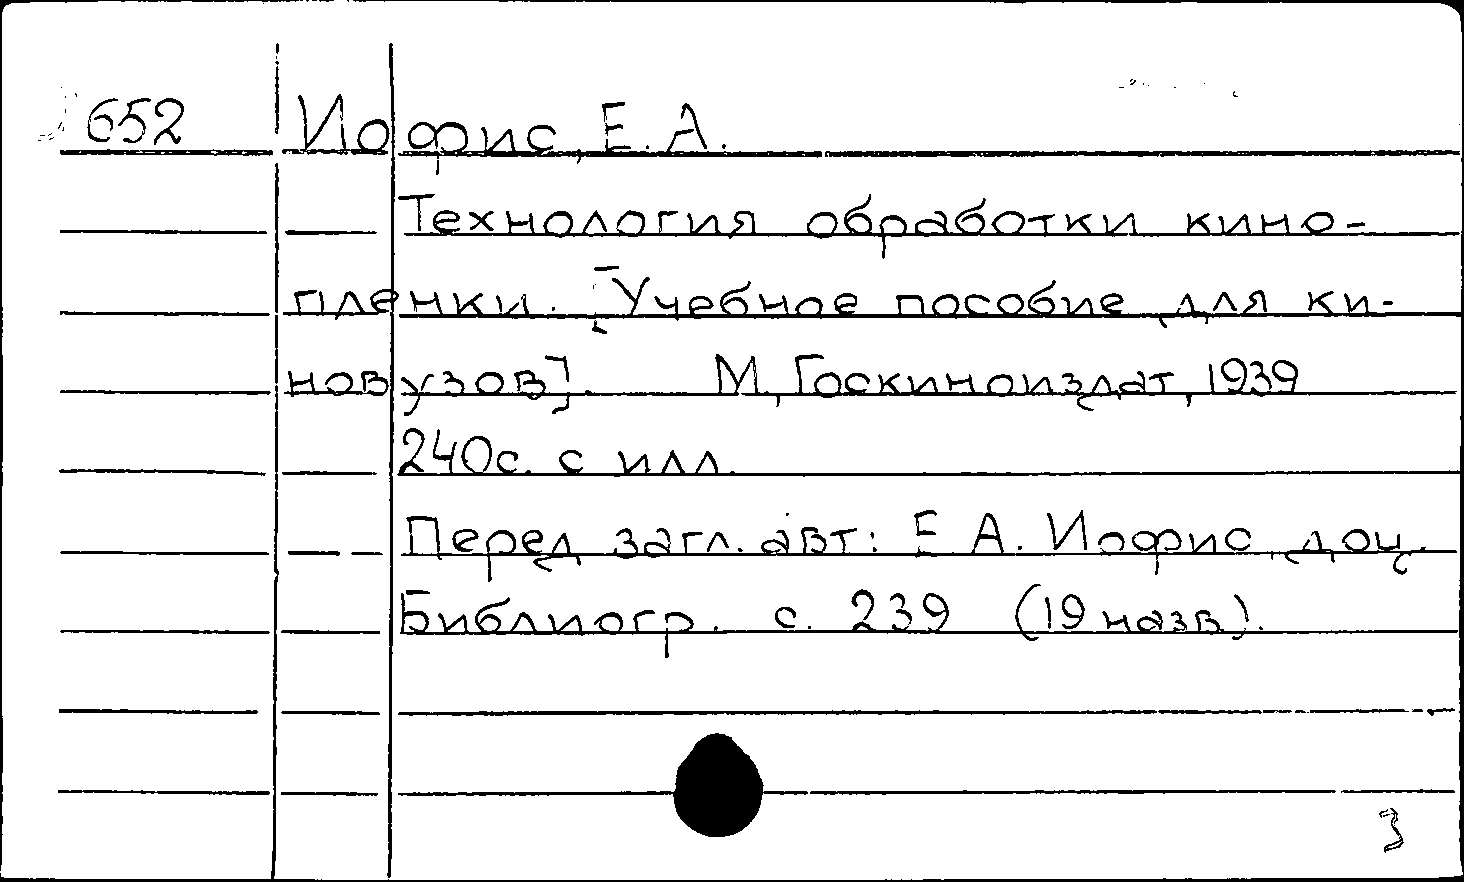 652 Иофис, Е. А.
Технология обработки кино-
пленки. [Учебное пособие для ки-
новузов]. М., Госкиноиздат, 1939
240с. с илл.
Перед загл. авт: Е. А. Иофис, доц.
Библиогр. с. 239 (19 назв).
3